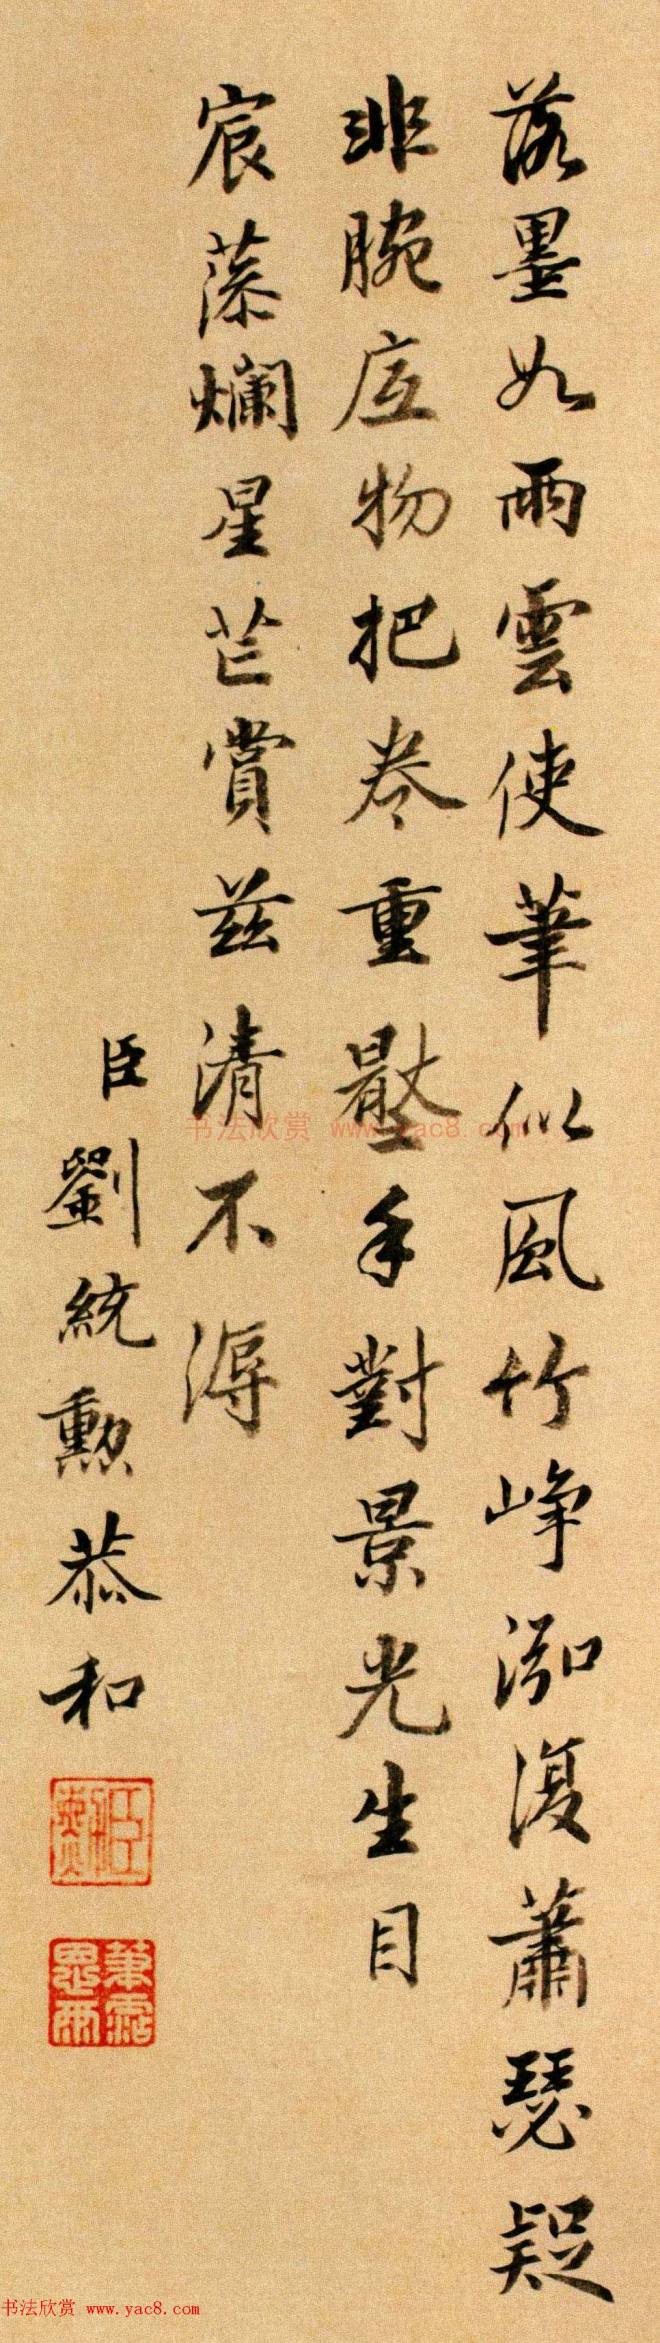 落墨如雨雲使筆似風竹峥泓復蕭瑟疑
非腕底物把卷重手對景光生目
宸藻爛星芒賞兹清不溽
臣劉統勳恭和
筆霑恩雨
书法欣赏 www.yac8.com
书法欣赏 www.yac8.com